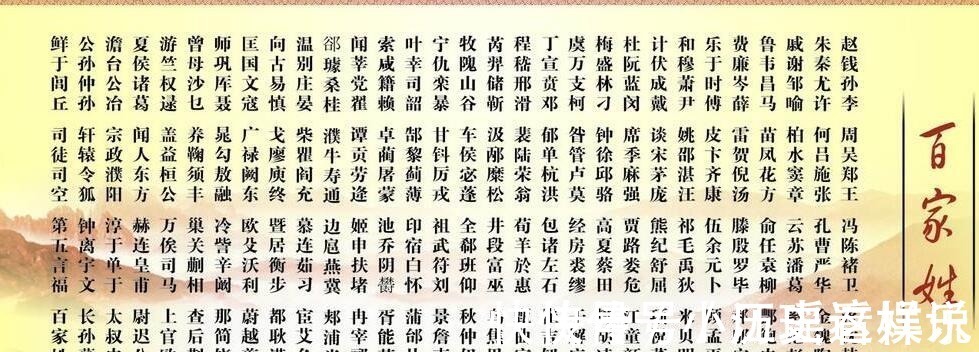 百家姓
赵钱孙李 周吴郑王 冯陈褚卫
朱秦尤许 何吕施张 孔曹严华
戚谢邹喻 柏水窦章 云苏潘葛
鲁韦昌马 苗凤花方 俞任袁柳
费廉岑薛 雷贺倪汤 滕殷罗毕
乐于时傅 皮卞齐康 伍余元卜
和穆萧尹 姚邵湛汪 祁毛禹狄
计伏成戴 谈宋茅庞 熊纪舒屈
杜阮蓝闵 席季麻强 贾路娄危
梅盛林刁 钟徐邱骆 高夏蔡田
虞万支柯 昝管卢莫 经房裘缪
丁宣贲邓 郁单杭洪 包诸左石
程嵇邢滑 裴陆荣翁 荀羊於惠
芮羿储靳 汲邴糜松 井段富巫
牧隗山谷 车侯宓蓬 全郗班仰 秋仲
宁仇栾暴 甘钭厉戎 祖武符刘 景詹
叶幸司韶 郜黎蓟薄 印宿白怀 蒲邰
索咸籍赖 卓蔺屠蒙 池乔阴鬱 胥能
闻莘党翟 谭贡劳逄 姬申扶堵 冉宰
郤璩桑桂 濮牛寿通 边扈燕冀 郏
温别庄晏 柴瞿阎充 慕连茹习 宦艾
向古易慎 戈廖庾终 暨居衡步 都耿
匡国文寇 广禄阙东 欧殳沃利 蔚越
师巩厍聂 晁勾敖融 冷訾辛阚 那简
曾毋沙乜 养鞠须丰 巢关蒯相 查后
游竺权逯 盖益桓公 万俟司马 上官
夏侯诸葛 闻人东方 赫连皇甫 尉迟
澹台公冶 宗政濮阳 淳于单于 太叔
公孙仲孙 轩辕令狐 钟离宇文 长孙
鲜于闾丘 司徒司空 第五言福 百家